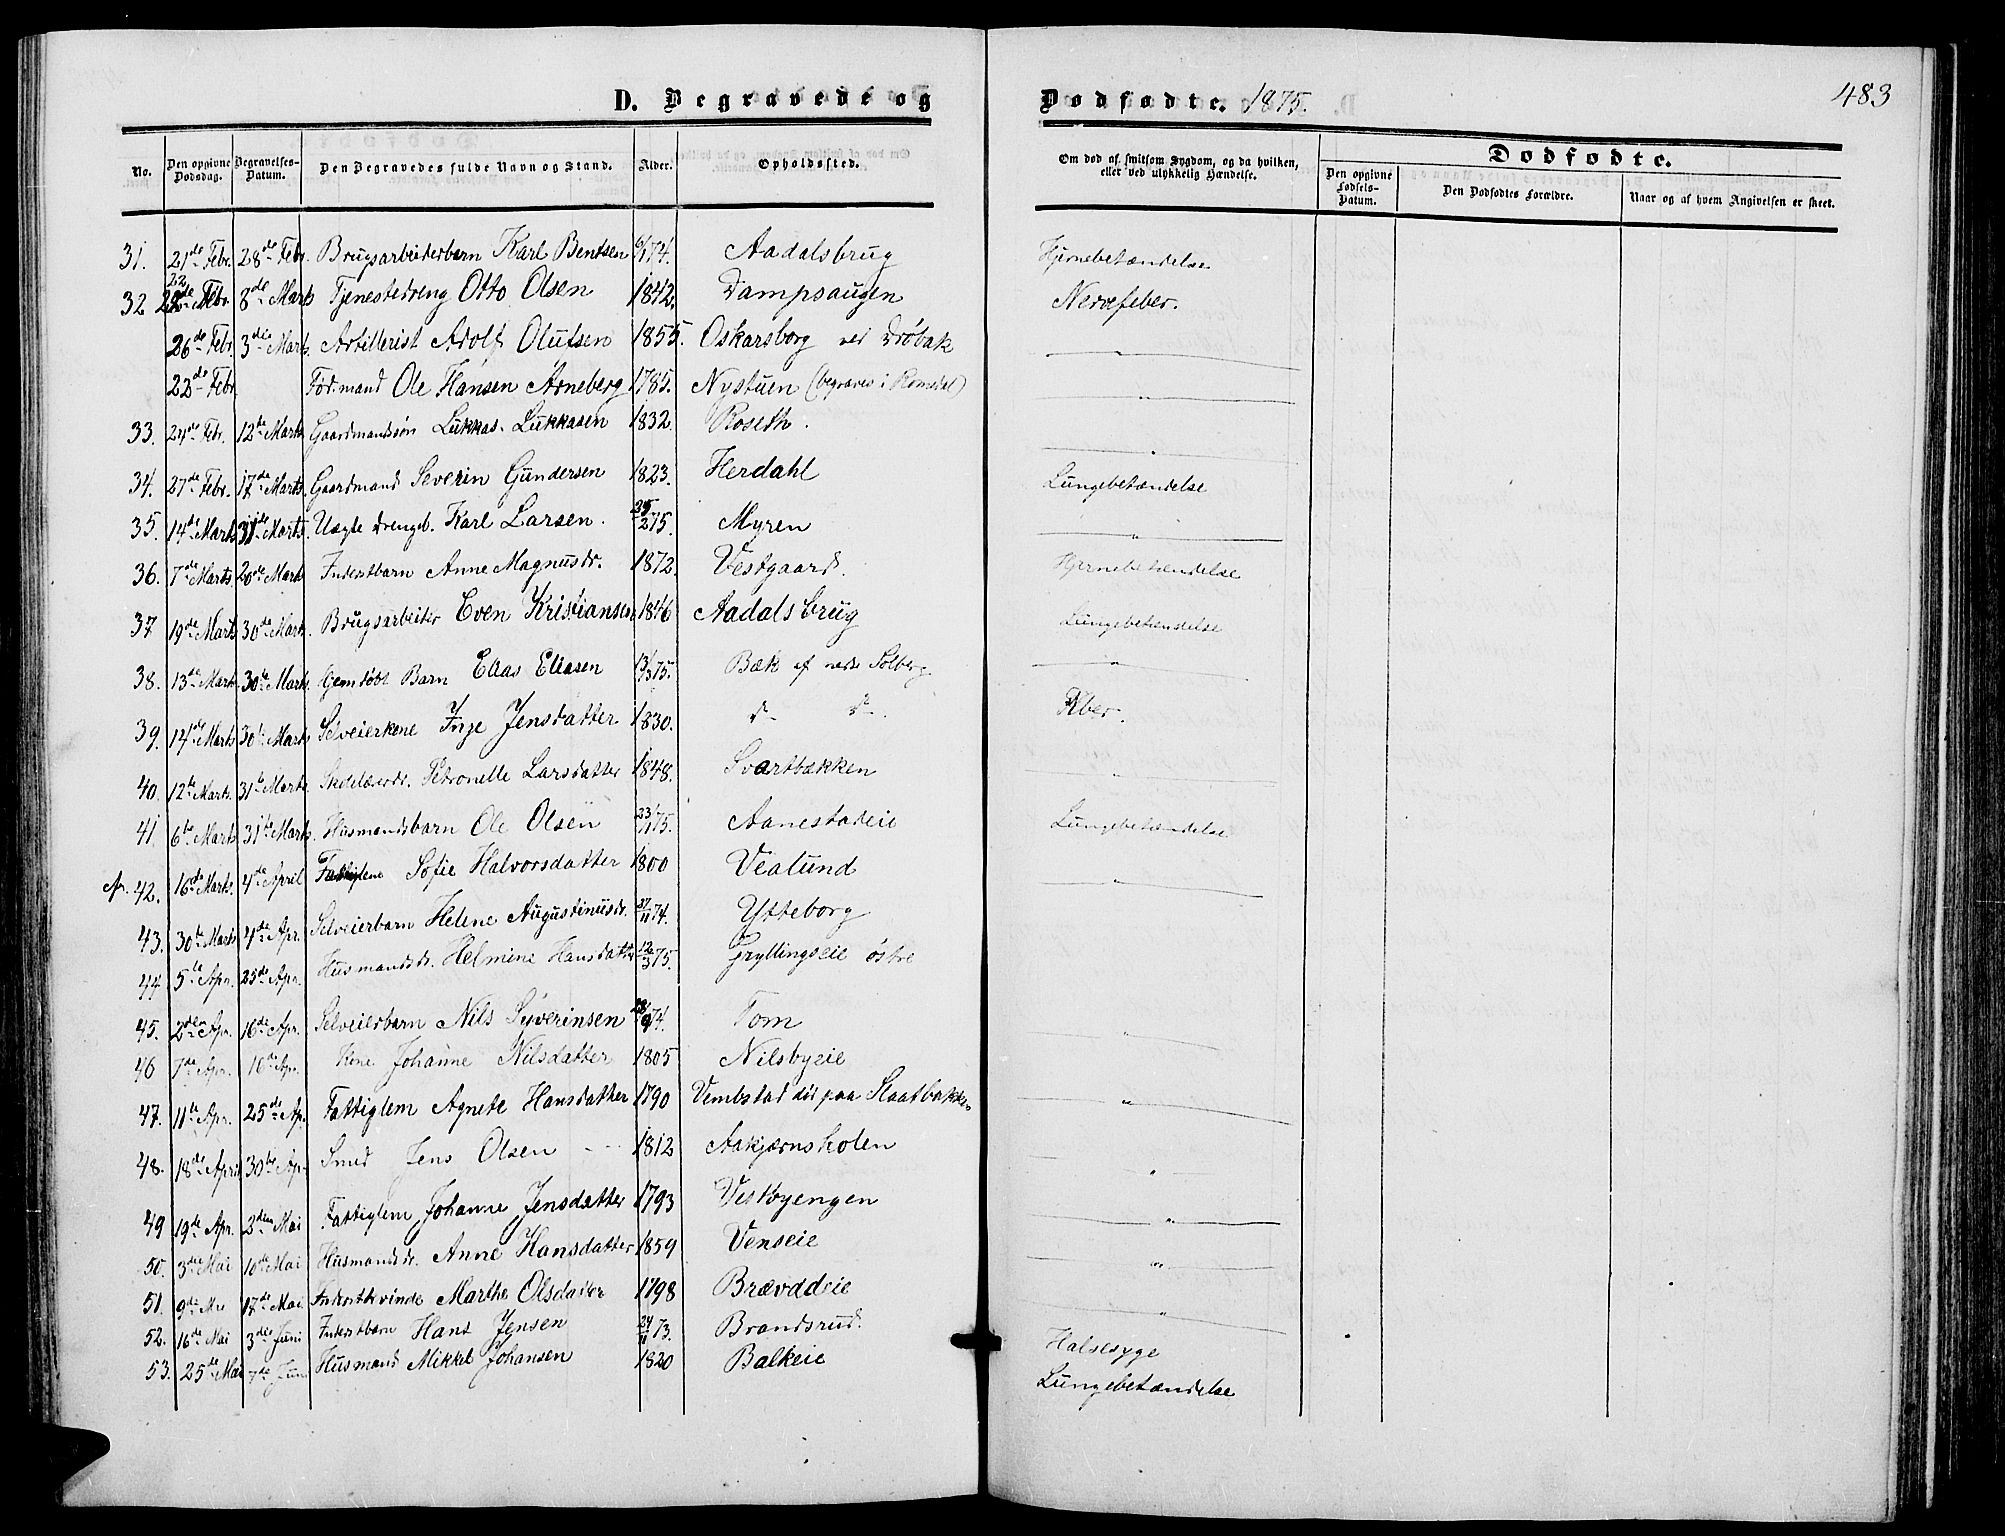 D. Begravede og Dødfødte. 1875. 483
No. Den opgivne Dødsdag. Begravelses-Datum. Den Begravedes fulde Navn og Stand. Alder. Opholdssted. Om død af smitsom Sygdom, og da hvilken, eller ved ulykkelig Hændelse. Dødfødte.
Den opgivne Fødsels-Datum. Den Dødfødtes Forældre. Naar og af hvem Angivelsen er skeet.
31. 21de Febr. 28de Febr. Brugsarbeiderbarn Karl Bentsen 6/1 74. Aadalsbrug Hjernebetændelse
32 22de Febr. 8de Marts Tjenestedreng Otto Olsen 1842. Dampsaugen Nervefeber.
26de Febr. 3die Marts. Artillerist Adolf Olufsen 1855. Oskarsborg ved Drøbak "
22de Febr. Fød.mand Ole Hansen Arneberg 1785. Nystuen (begraves i Romedal) "
33. 24de Febr. 12te Marts Gaardmandssøn Lukkas Lukkasen 1832. Roseth. "
34. 27de Febr. 17de Marts. Gaardmand Severin Gundersen 1823. Herdahl Lungebetændelse
35. 14de Marts 31te Marts. Uægte Drengeb. Karl Larsen. 25/2 75. Myren "
36. 7de Marts 20de Marts Inderstbarn Anne Magnusdr. 1872. Vestgaard. Hjernebetændelse
37 19de Marts 30de Marts. Brugsarbeider Even Kristiansen 1846 Aadalsbrug Lungebetændelse
38. 13de Marts 30te Marts. Hjemdøbt Barn Elias Eliasen 13/3 75. Bæk af nedr Solberg "
39. 14de Marts 30te Marts Selveierkone Inge Jensdatter 1830. d- d-
40. 12te Marts. 31te Marts Petronelle Larsdatter 1848. Svartbækken "
41. 6te Marts 31te Marts. Husmandsbarn Ole Olsen 23/1 75. Aanestadeie Lungebetændelse
Ap. 42. 16de Marts. 4de April Sofie Halvorsdatter 1800 Vealund "
43. 30te Marts 4de Apr. Selveierbarn Helene Augustinusdr. 27/11 74. Ytteborg
44 5te Apr. 25de Apr. Husmandsdr. Helmine Hansdatter 12/3 75. Gryllingseie østre
45. 2den Apr. 16de Apr. Selveierbarn Nils Syverinsen 28/9 74. Tom "
46 7de Apr. 16de Apr. Kone Johanne Nilsdatter 1805 Nilsbyeie
47. 11te Apr. 25de Ap. Fattiglem Agnete Hansdatter 1790 Vembstad død paa Slaatbakken "
48. 18de April 30te Apr. Smed Jens Olsen 1812 Aakjærnsholen "
49 19de Apr. 2den Mai Fattiglem Johanne Jensdatter 1793 Vestbyengen "
50. 3die Mai 10de Mai Husmandsdr. Anne Hansdatter 1859 Venseie "
51. 9de Mai 17de Mai Inderstkvinde Marthe Olsdatter 1798 Brævddeie "
52. 16de Mai 3die Juni Inderstbarn Hans Jensen 24/11 73. Brandsrud. Halsesyge
53. 25de Mai 7de Juni Husmand Mikkel Johansen 1820 Balkeie Lungebetændelse